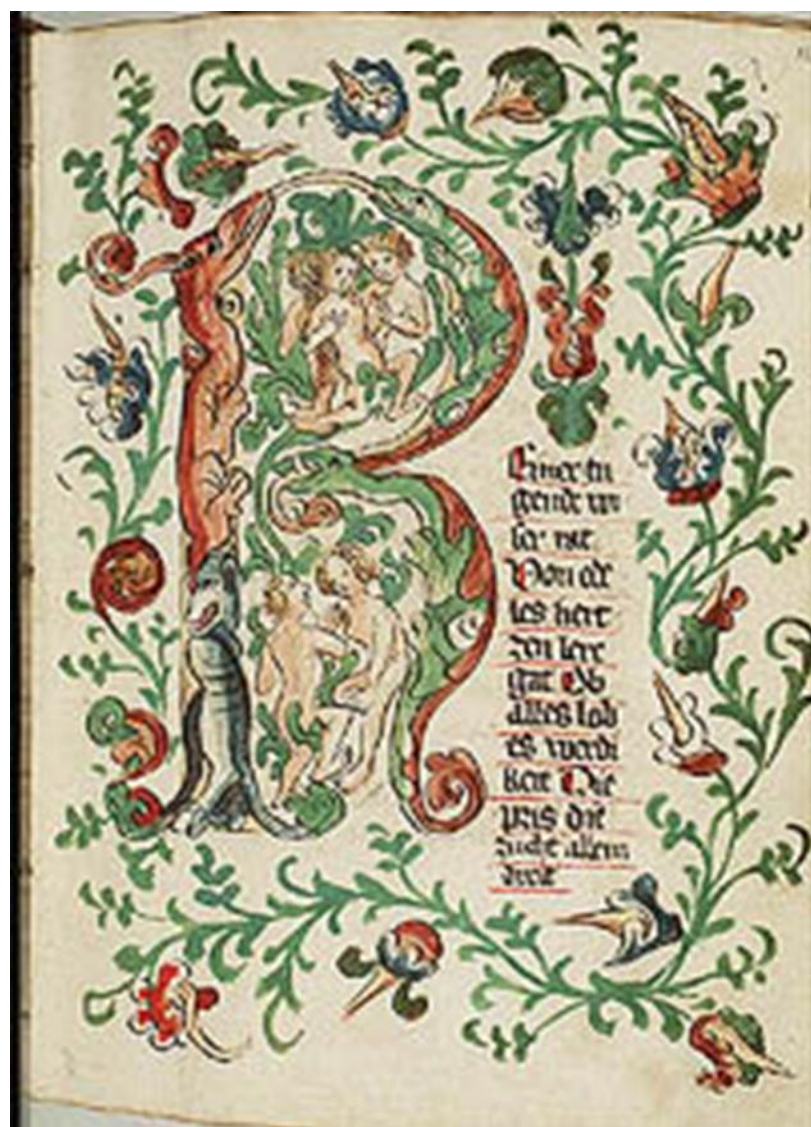 R
Einer tu
gende wi
ser rat
Von ede
les hert
zen lere
gat Ob
alles lob
es werdi
keit Die
pris die
allein
treit